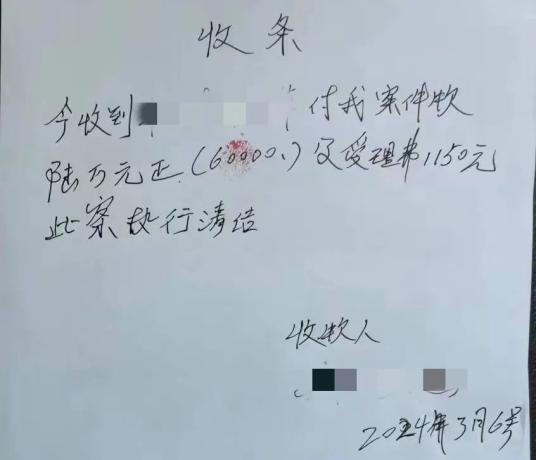 收条
今收到 付我案件款
陆万元正(60000.)及受理费1150元
此案执行清结
收款人
2024年3月6号